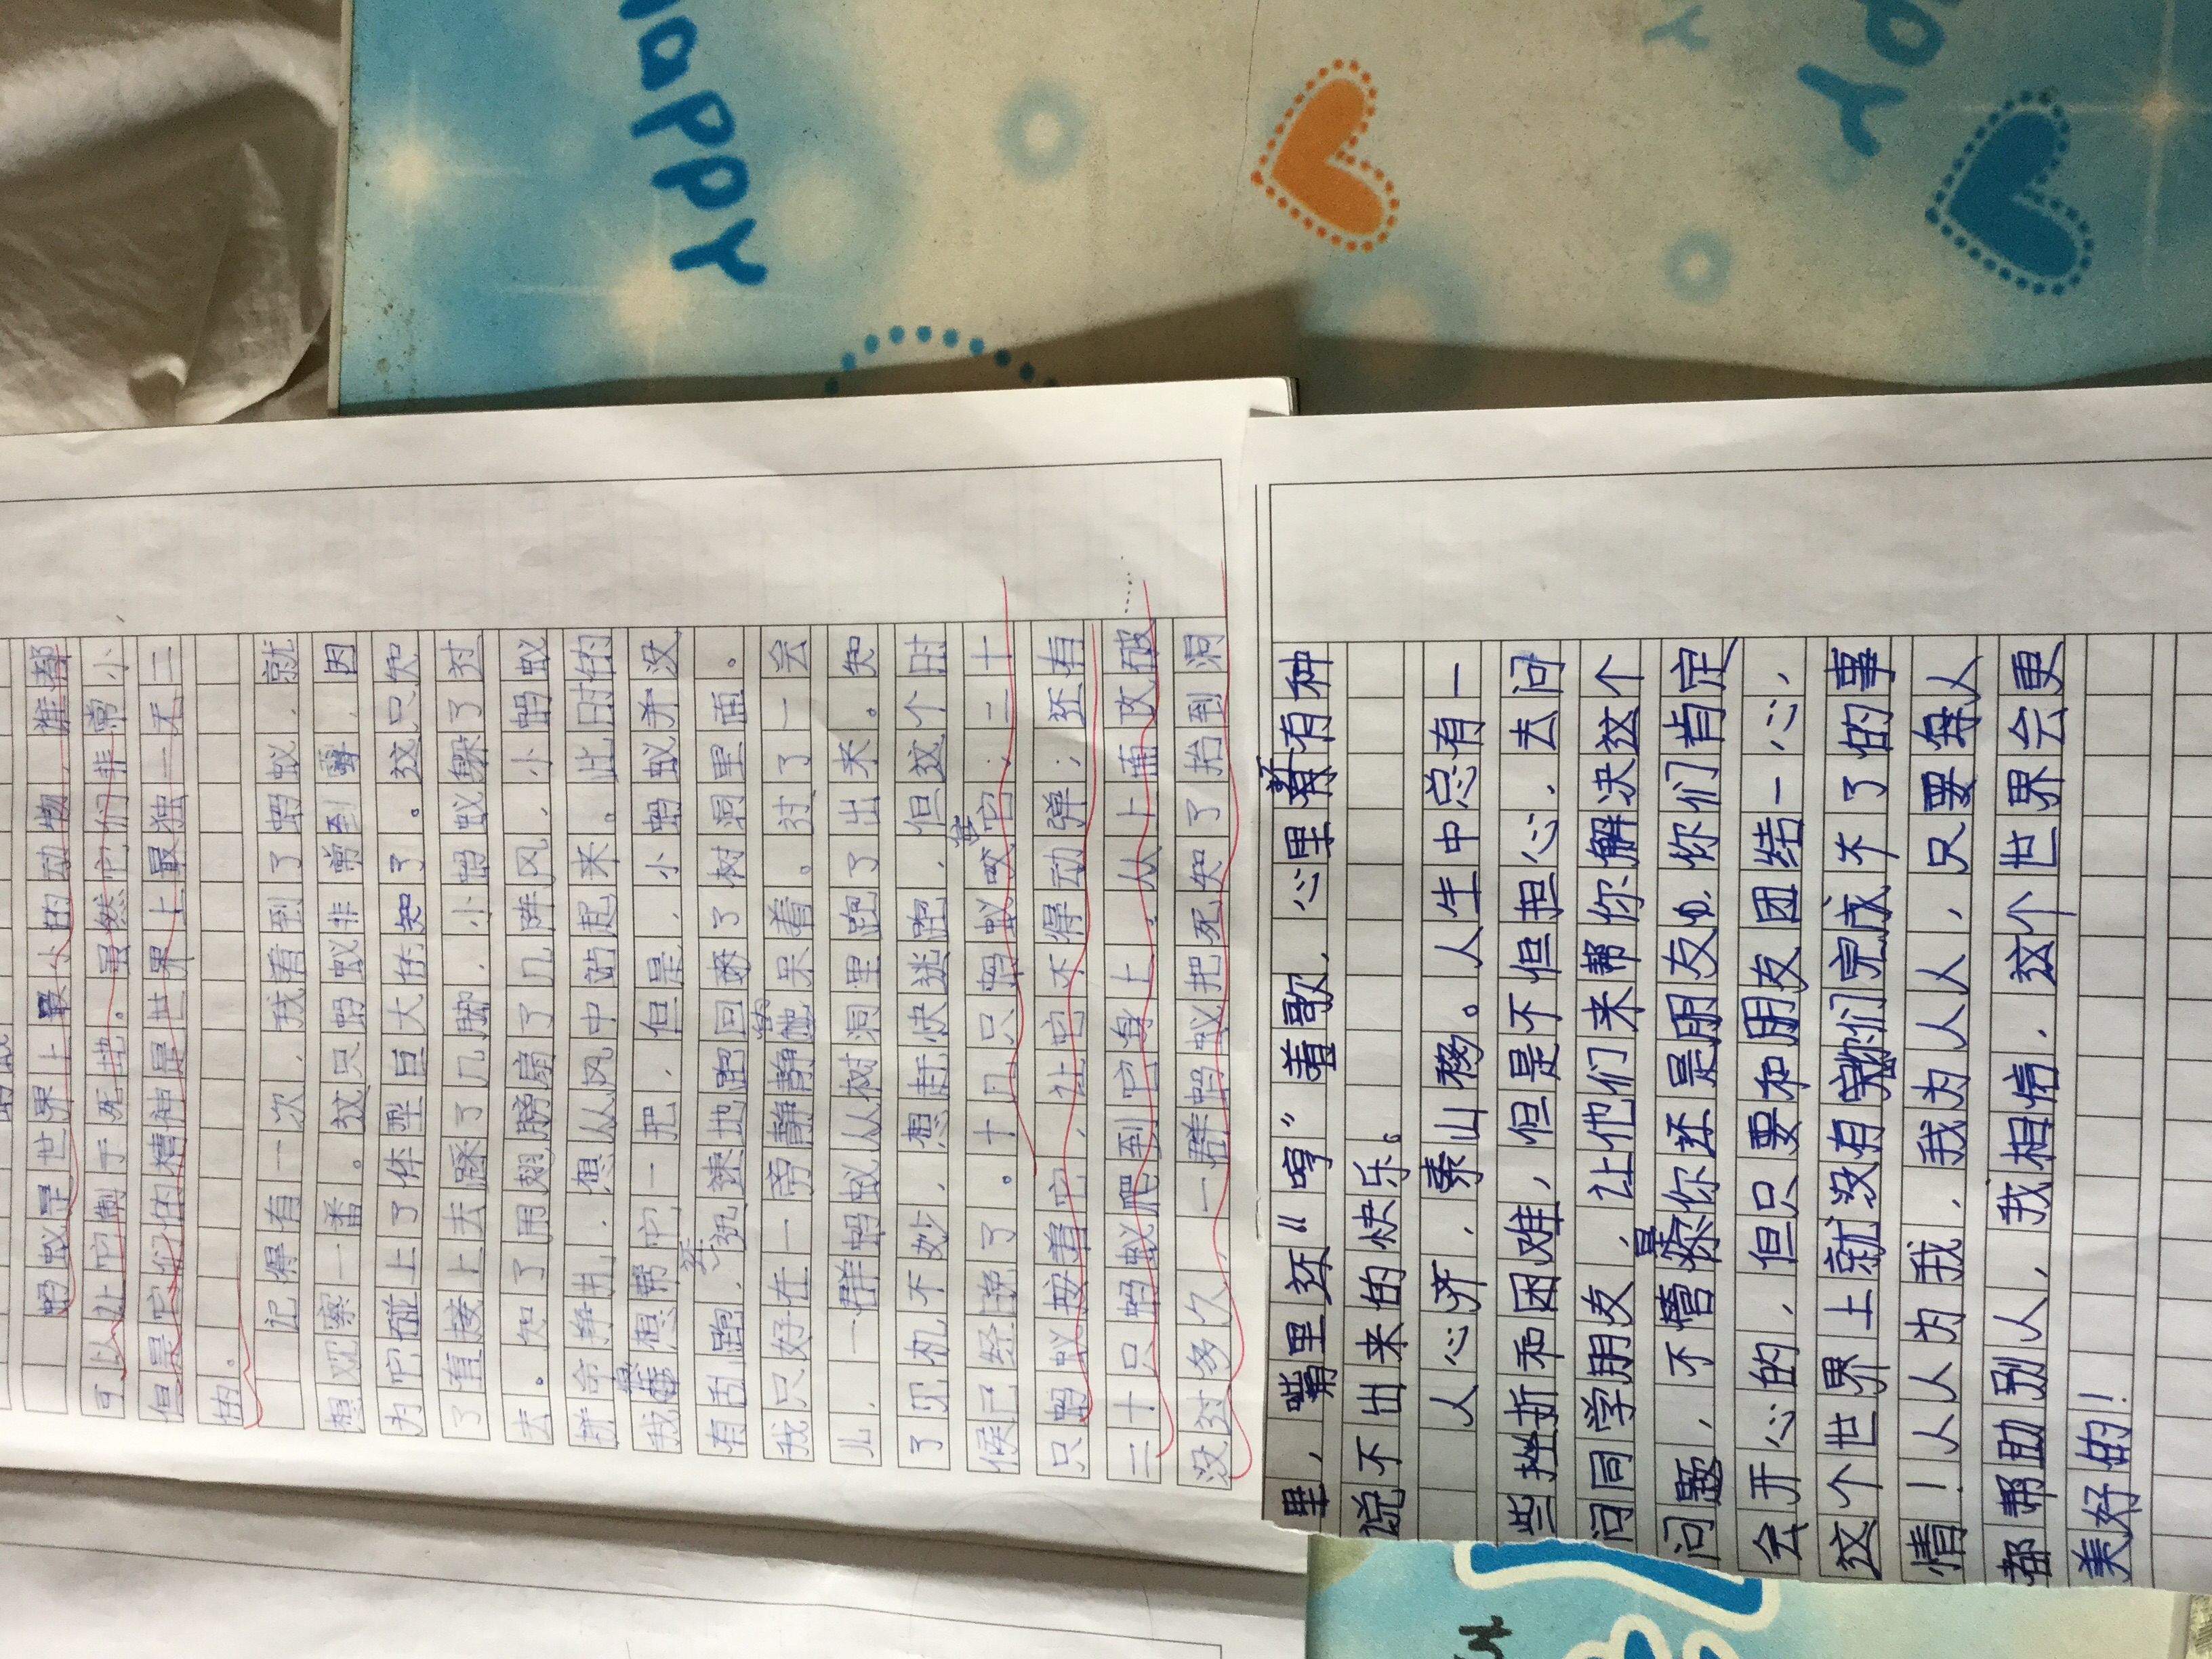 happy
蚂蚁是世界上最小的动物，谁都
可以让它制于死地。虽然它们非常小
但是它们的精神是世界上最独一无二
的。
记得有一次，我看到了蚂蚁，就
想观察一番。这只蚂蚁非常到霉，因
为它碰上了体型巨大的知了。这只知
了直接上去踩了几脚，小蚂蚁躲了过
去。知了用翅膀扇了几阵风，小蚂蚁
拼命挣扎，想从风中站起来。此时的
我最想帮它一把，但是，小蚂蚁并没
有乱跑，还迅速地跑回了树洞里面。
我只好在一旁静静的呆着。过了一会
儿，一群蚂蚁从树洞里跑了出来。知
了见机不妙，想赶快逃跑，但这个时
候已经晚了。十几只蚂蚁咬它；二十
只蚂蚁按着它，让它不得动弹；还有
二十只蚂蚁爬到它身上，从上面攻破
……
没过多久，一群蚂蚁把死知了抬到洞
里，嘴里还“哼”着歌，心里还有种
说不出来的快乐。
人心济，泰山移。人生中总有一
些挫折和困难，但是不但担心，去问
问同学朋友，让他们来帮你解决这个
问题，不管你还是最朋友的你们肯定
会开心的，但只要和朋友团结一心，
这个世界上就没有你们完成不了的事
情！人人为我，我为人人，只要每人
都帮助别人，我相信，这个世界会更
美好的！